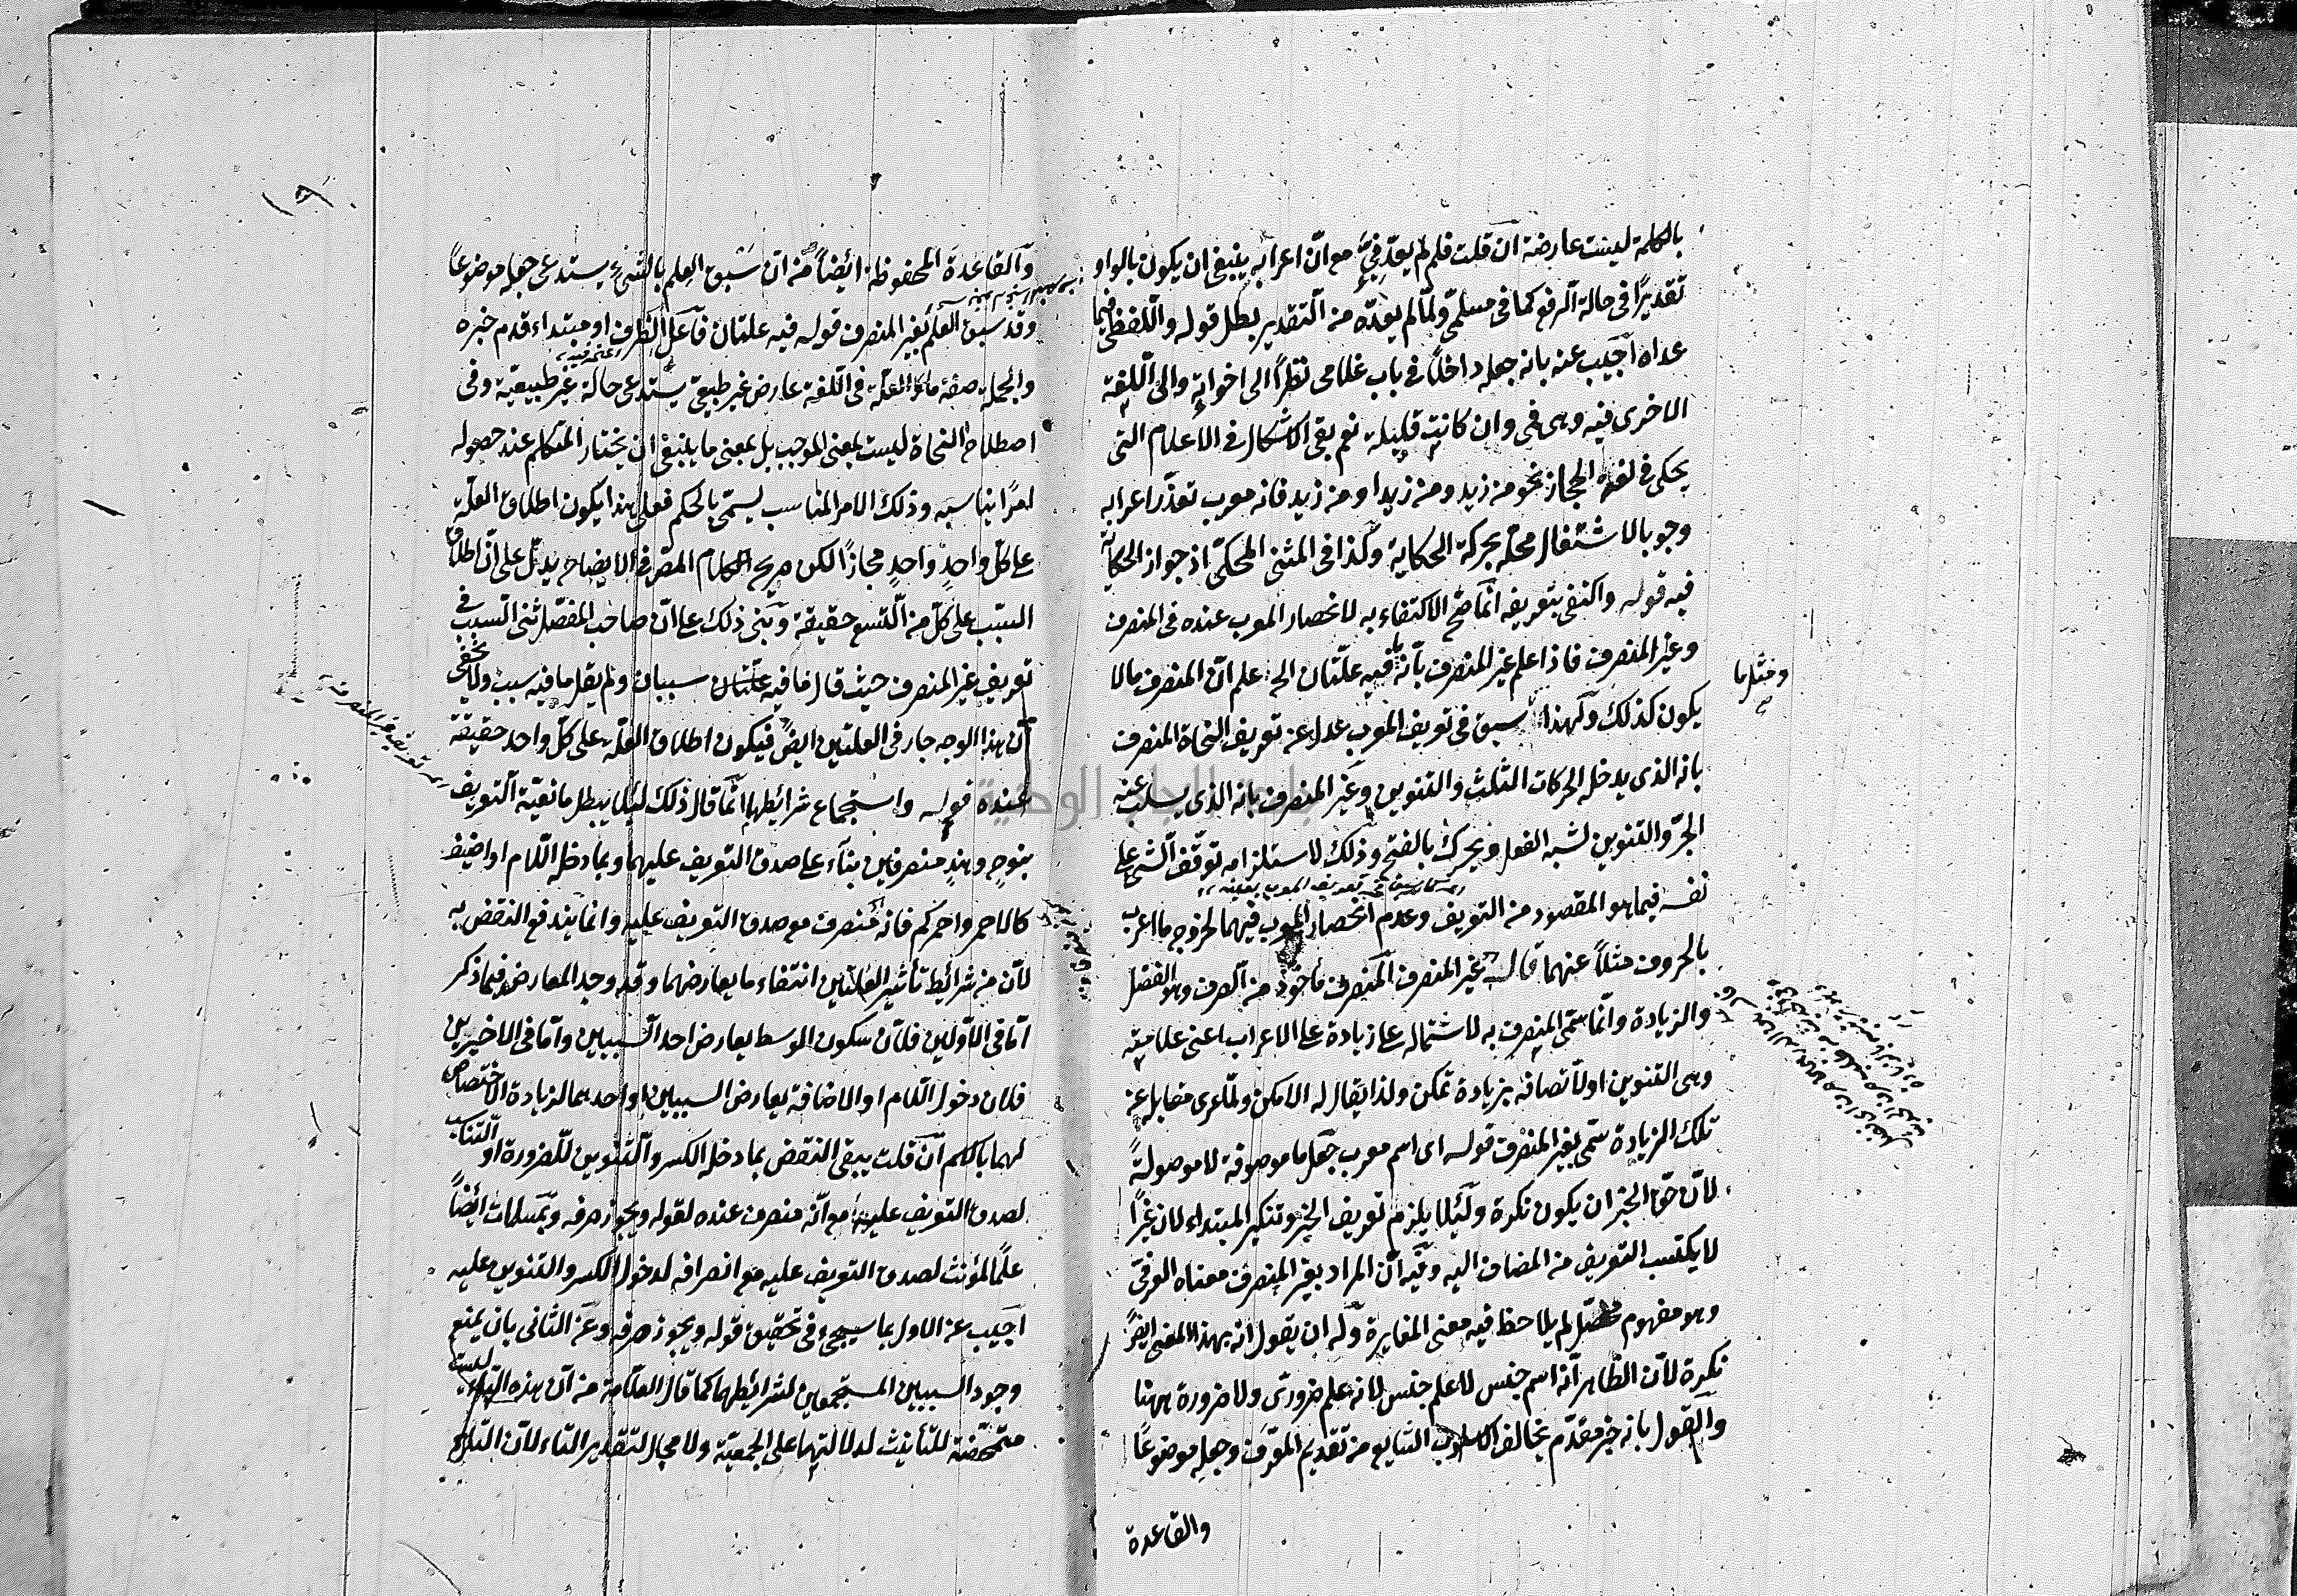 بالكلمة ليست عارضة ان قلت فلم لم يعد في مع ان اعرابه ينبغي ان يكون بالواو
تقديرا في حالة الرفع كما في مسلمي ولما لم يعده من التقدير بطل قوله واللفظي فيما
عداه اجيب عنه بانه جعله داخلا في باب غلامي نظرا الى اخواته والى اللغة
الاخرى فيه وهي في وان كانت قليلة نعم بقي الاشكال في الاعلام التي
يحكى في لغة الحجاز نحو من زيد ومن زيدا ومن زيد فانه معرب تعذر اعرابه
وجوبا لاشتغال محله بحركة الحكاية وكذا في المثنى المحكي اذ جواز الحكاية
فيه قوله واكتفى بتعريفه انما صح الاكتفاء به لانحصار المعرب عنده في المنصرف
وغير المنصرف فاذا علم غير المنصرف بانه ما فيه علتان الخ علم ان المنصرف ما لا
يكون كذلك ولهذا سبق في تعريف المعرب عدل عن تعريف النحاة المنصرف
ومثل ما
بانه الذي يدخله الحركات الثلث والتنوين وغير المنصرف بانه الذي يسلب عنه
الجر والتنوين لشبه الفعل ويحرك بالفتح وذلك لاستلزامه توقف الشيء على
نفسه فيما هو المقصود من التعريف وعدم انحصار المعرب فيهما لخروج ما اعرب
بالحروف مثلا عنهما قال غير المنصرف المنصرف مأخوذ من الصرف وهو الفضل
والزيادة وانما سمي المنصرف به لاشتماله على زيادة على الاعراب اعني علامته
وهي التنوين او لاتصافه بزيادة تمكن ولذا يقال له الامكن ولما عري مقابله عن
تلك الزيادة سمي بغير المنصرف قوله اي اسم معرب جعل ما موصوفة لا موصولة
لان حق الخبر ان يكون نكرة ولئلا يلزم تعريف الخبر وتنكير المبتداء لان غيرا
لا يكتسب التعريف من المضاف اليه وفيه ان المراد بغير المنصرف معناه العرفي
وهو مفهوم محصل لم يلاحظ فيه معنى المغايرة وله ان يقول انه بهذا المعنى ايضا
نكرة لان الظاهر انه اسم جنس لا علم جنس لانه علم ضروري ولا ضرورة ههنا
والقول بانه خبر مقدم يخالف الاسلوب الشايع من تقديم المعرف وجعله موضوعا
والقاعدة
والقاعدة المحفوظة ايضا من ان سبق العلم بالشيء يستدعي جعله موضوعا
وقد سبق العلم بغير المنصرف قوله فيه علتان فاعل الظرف او مبتداء قدم خبره
والجملة صفة ما العلة في اللغة عارض غير طبيعي يستدعي حالة غير طبيعية وفي
اصطلاح النحاة ليست بمعنى الموجب بل بمعنى ما ينبغي ان يختار المتكلم عند حصوله
امرا يناسبه وذلك الامر المناسب يسمى بالحكم فعلى هذا يكون اطلاق العلة
على كل واحد واحد مجازا لكن صريح كلام المص في الايضاح يدل على ان اطلاق
السبب على كل من التسع حقيقة وبنى ذلك على ان صاحب المفصل ثنى السبب في
تعريف غير المنصرف حيث قال ما فيه سببان ولم يقل ما فيه سبب ولا يخفى
ان هذا الوجه جار في العلتين ايضا فيكون اطلاق العلة على كل واحد حقيقة
عنده قوله واستجماع شرائطهما انما قال ذلك لئلا يبطل مانعية التعريف
بنوح وهند منصرفين بناء على صدق التعريف عليهما وبما دخله اللام او اضيف
كالاحمر واحمركم فانه منصرف مع صدق التعريف عليه وانما يندفع النقض به
لان من شرائط تأثير العلتين انتفاء ما يعارضهما وقد وجد المعارض فيما ذكر
اما في الاولين فلان سكون الوسط يعارض احد السببين واما في الاخيرين
فلان دخول اللام او الاضافة يعارض السببين او احدهما لزيادة الاختصاص
لهما بالاسم ان قلت يبقى النقض بما دخله الكسر والتنوين للضرورة او التناسب
لصدق التعريف عليه مع انه منصرف عنده لقوله ويجوز صرفه وبمسلمات ايضا
علما لمؤنث لصدق التعريف عليه مع انصرافه لدخول الكسر والتنوين عليه
اجيب عن الاول بما سيجيء في تحقيق قوله ويجوز صرفه وعن الثاني بان يمنع
وجود السببين المستجمعين لشرائطهما كما قال العلامة من ان هذه التاء ليست
متمحضة للتأنيث لدلالتها على الجمعية ولا مجال لتقدير التاء لان التاء